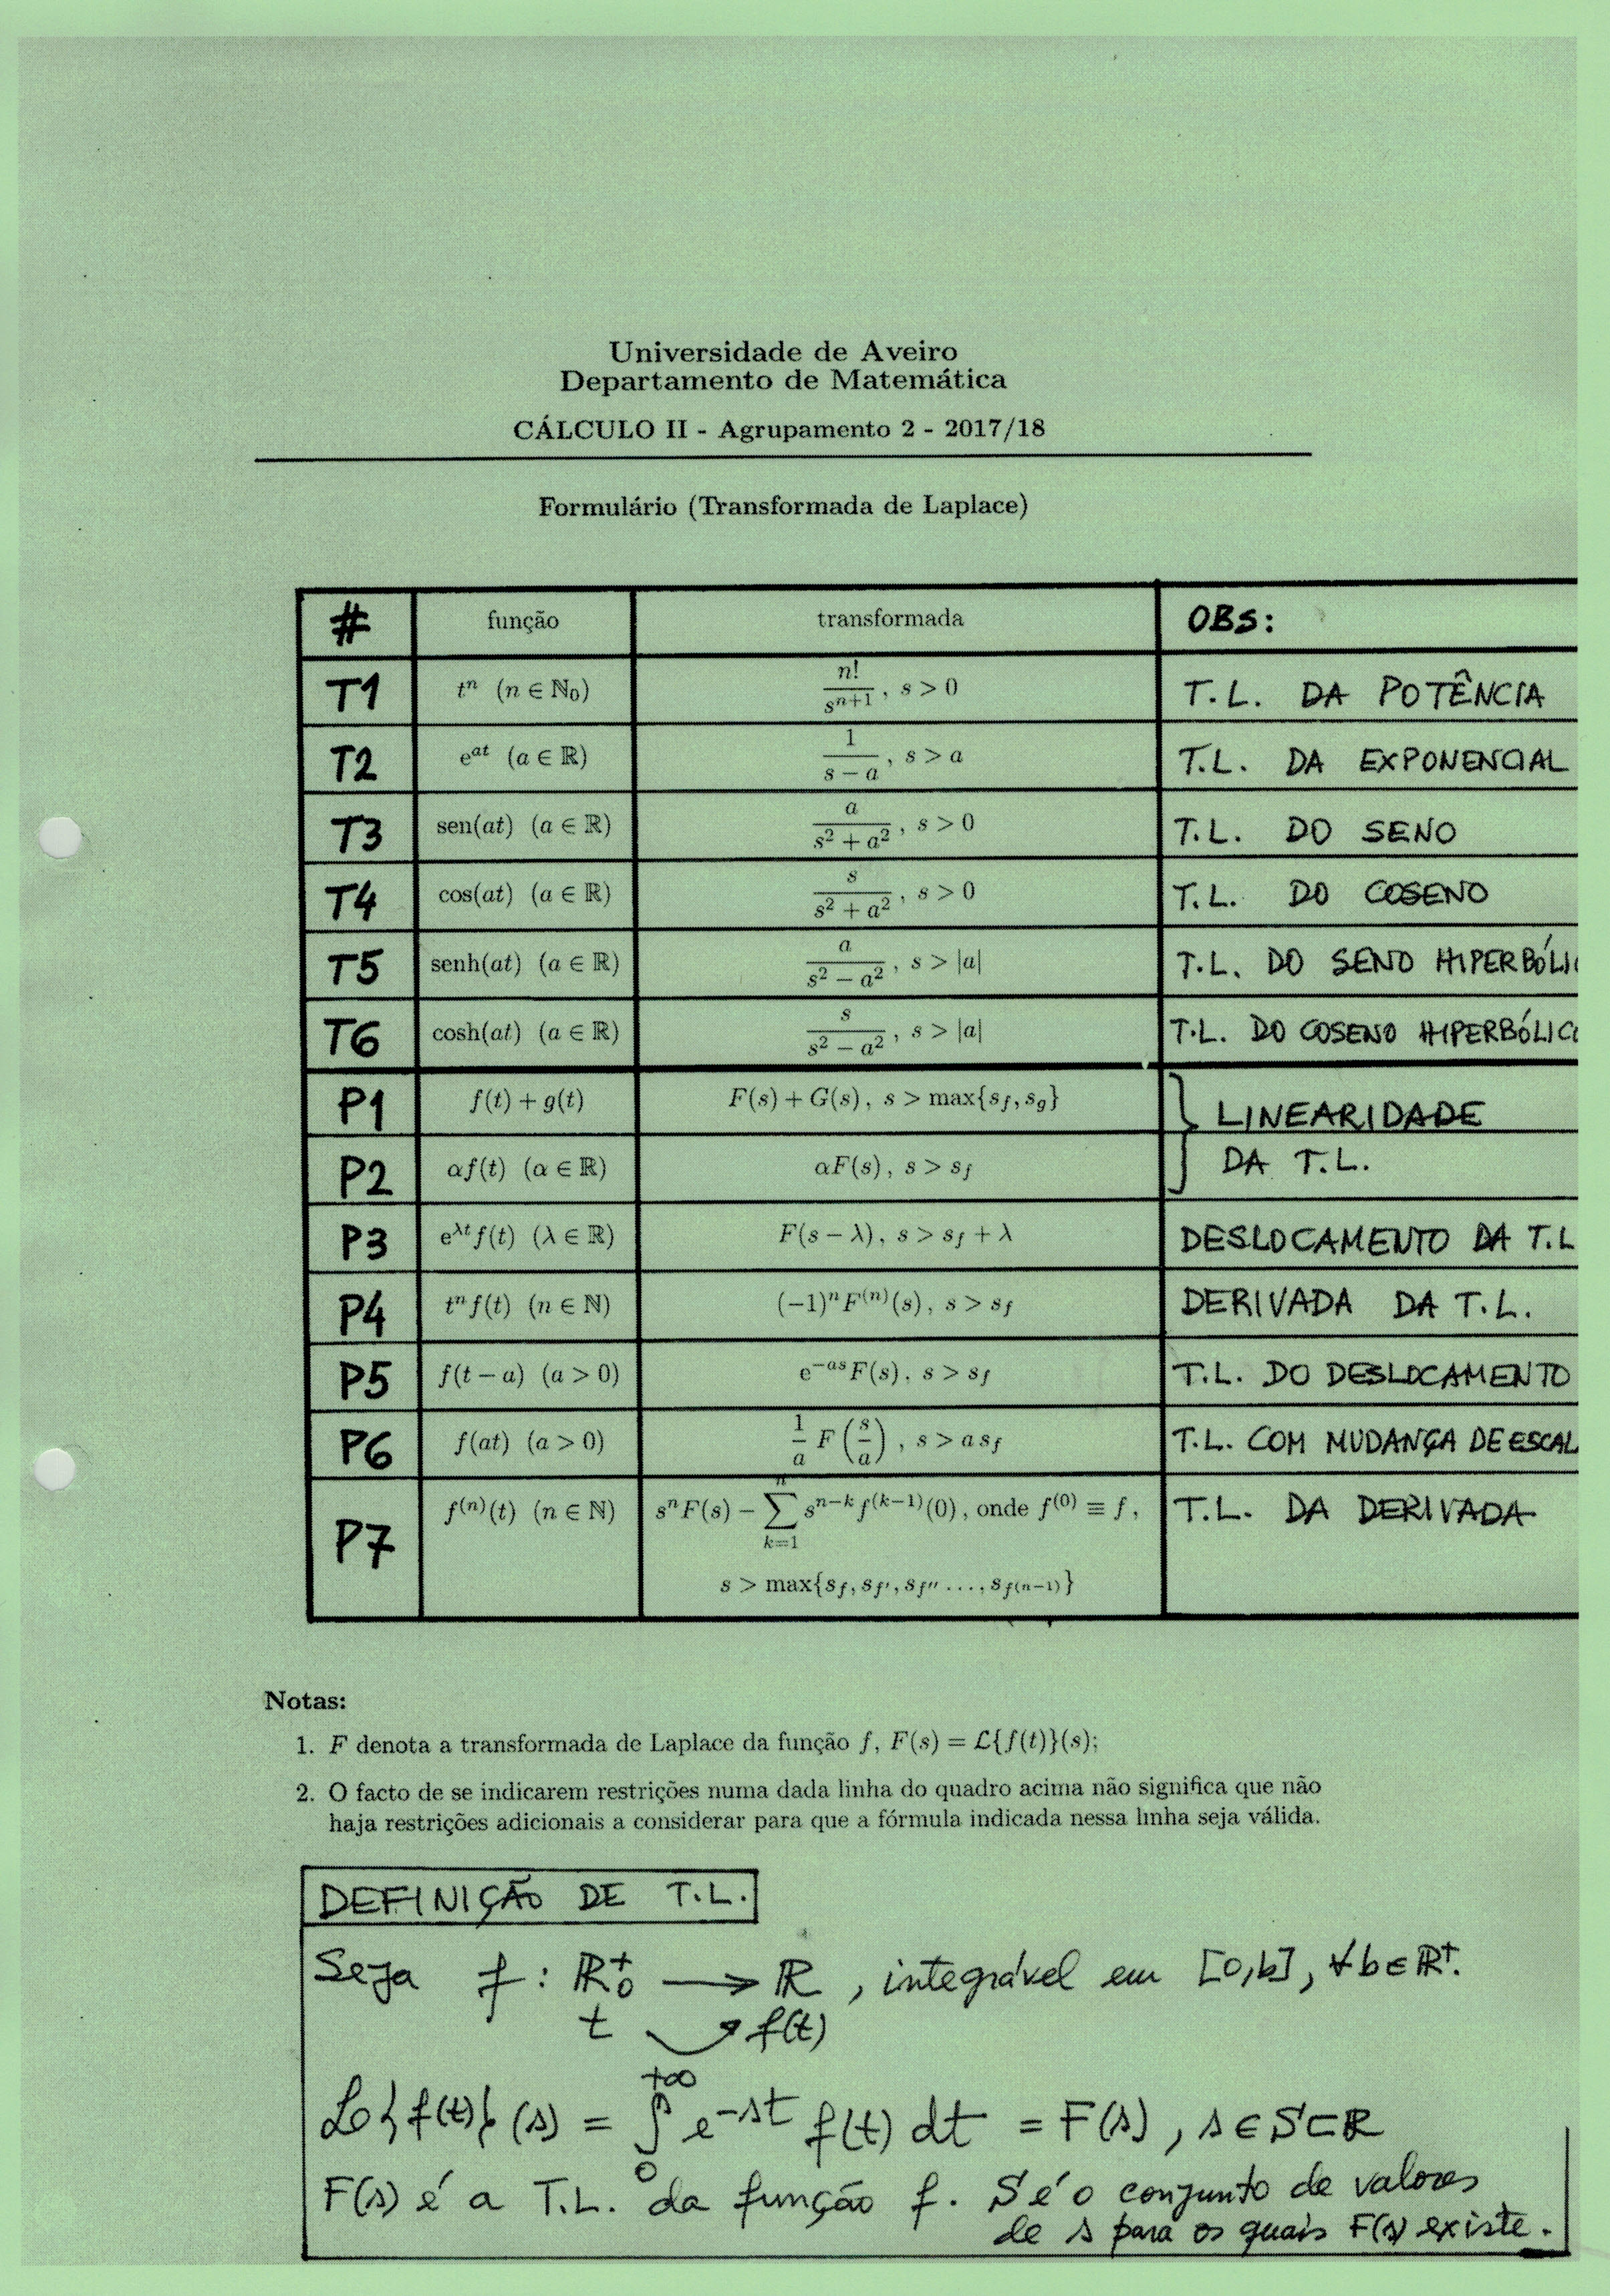 Universidade de Aveiro
Departamento de Matemática
CÁLCULO II - Agrupamento 2 - 2017/18
Formulário (Transformada de Laplace)
# função transformada OBS:
T1 tⁿ (n ∈ ℕ₀) n!/sⁿ⁺¹ , s > 0 T.L. DA POTÊNCIA
T2 e^{at} (a ∈ ℝ) 1/(s − a) , s > a T.L. DA EXPONENCIAL
T3 sen(at) (a ∈ ℝ) a/(s² + a²) , s > 0 T.L. DO SENO
T4 cos(at) (a ∈ ℝ) s/(s² + a²) , s > 0 T.L. DO COSENO
T5 senh(at) (a ∈ ℝ) a/(s² − a²) , s > |a| T.L. DO SENO HIPERBÓLIC
T6 cosh(at) (a ∈ ℝ) s/(s² − a²) , s > |a| T.L. DO COSENO HIPERBÓLICO
P1 f(t) + g(t) F(s) + G(s) , s > max{s_f, s_g} } LINEARIDADE
P2 αf(t) (α ∈ ℝ) αF(s) , s > s_f DA T.L.
P3 e^{λt} f(t) (λ ∈ ℝ) F(s − λ) , s > s_f + λ DESLOCAMENTO DA T.L
P4 tⁿ f(t) (n ∈ ℕ) (−1)ⁿ F⁽ⁿ⁾(s) , s > s_f DERIVADA DA T.L.
P5 f(t − a) (a > 0) e^{−as} F(s) , s > s_f T.L. DO DESLOCAMENTO
P6 f(at) (a > 0) 1/a F(s/a) , s > a s_f T.L. COM MUDANÇA DE ESCAL
P7 f⁽ⁿ⁾(t) (n ∈ ℕ) sⁿF(s) − ∑_{k=1}^{n} s^{n−k} f^{(k−1)}(0) , onde f⁽⁰⁾ ≡ f , T.L. DA DERIVADA
s > max{s_f, s_{f′}, s_{f″} . . . , s_{f^{(n−1)}}}
Notas:
1. F denota a transformada de Laplace da função f, F(s) = ℒ{f(t)}(s);
2. O facto de se indicarem restrições numa dada linha do quadro acima não significa que não
haja restrições adicionais a considerar para que a fórmula indicada nessa linha seja válida.
DEFINIÇÃO DE T.L.
Seja f : ℝ₀⁺ → ℝ , integrável em [0,b], ∀b∈ℝ⁺.
t ↝ f(t)
ℒ{f(t)}(s) = ∫₀^{+∞} e^{−st} f(t) dt = F(s) , s ∈ S ⊂ ℝ
F(s) é a T.L. da função f. S é o conjunto de valores
de s para os quais F(s) existe.